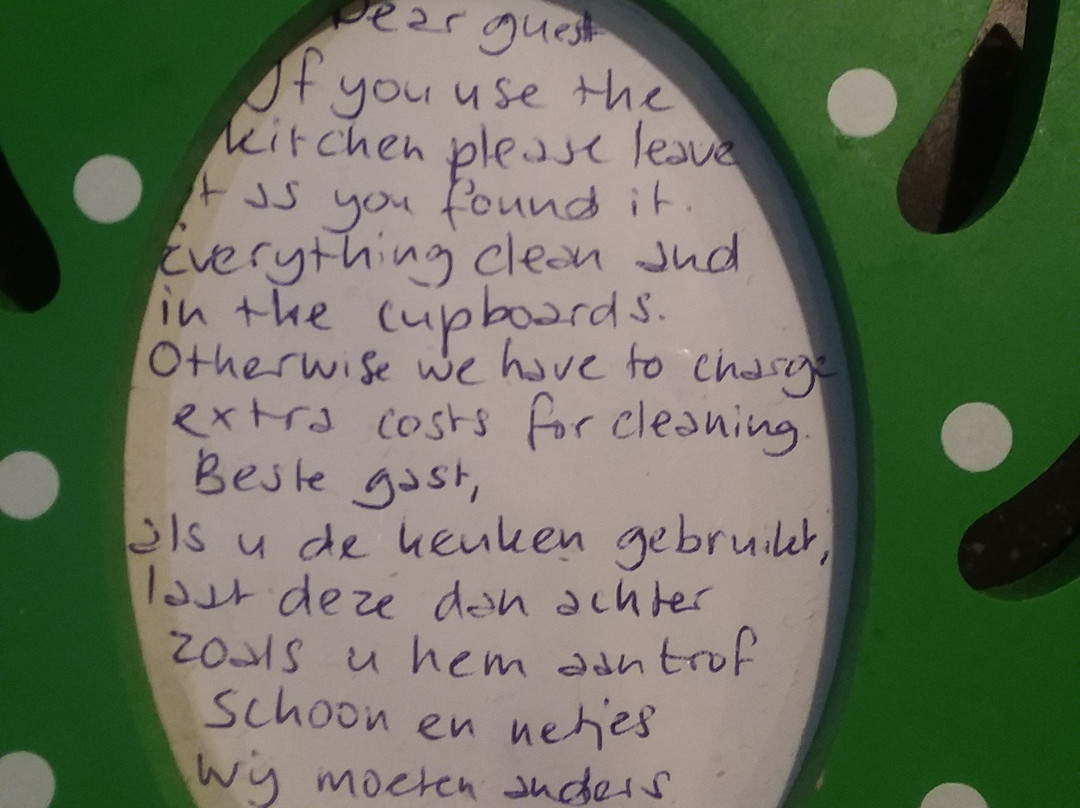 Dear guest
If you use the
kitchen please leave
it as you found it.
Everything clean and
in the cupboards.
Otherwise we have to charge
extra costs for cleaning.
Beste gast,
als u de keuken gebruikt,
laat deze dan achter
zoals u hem aantrof
schoon en netjes
Wij moeten anders